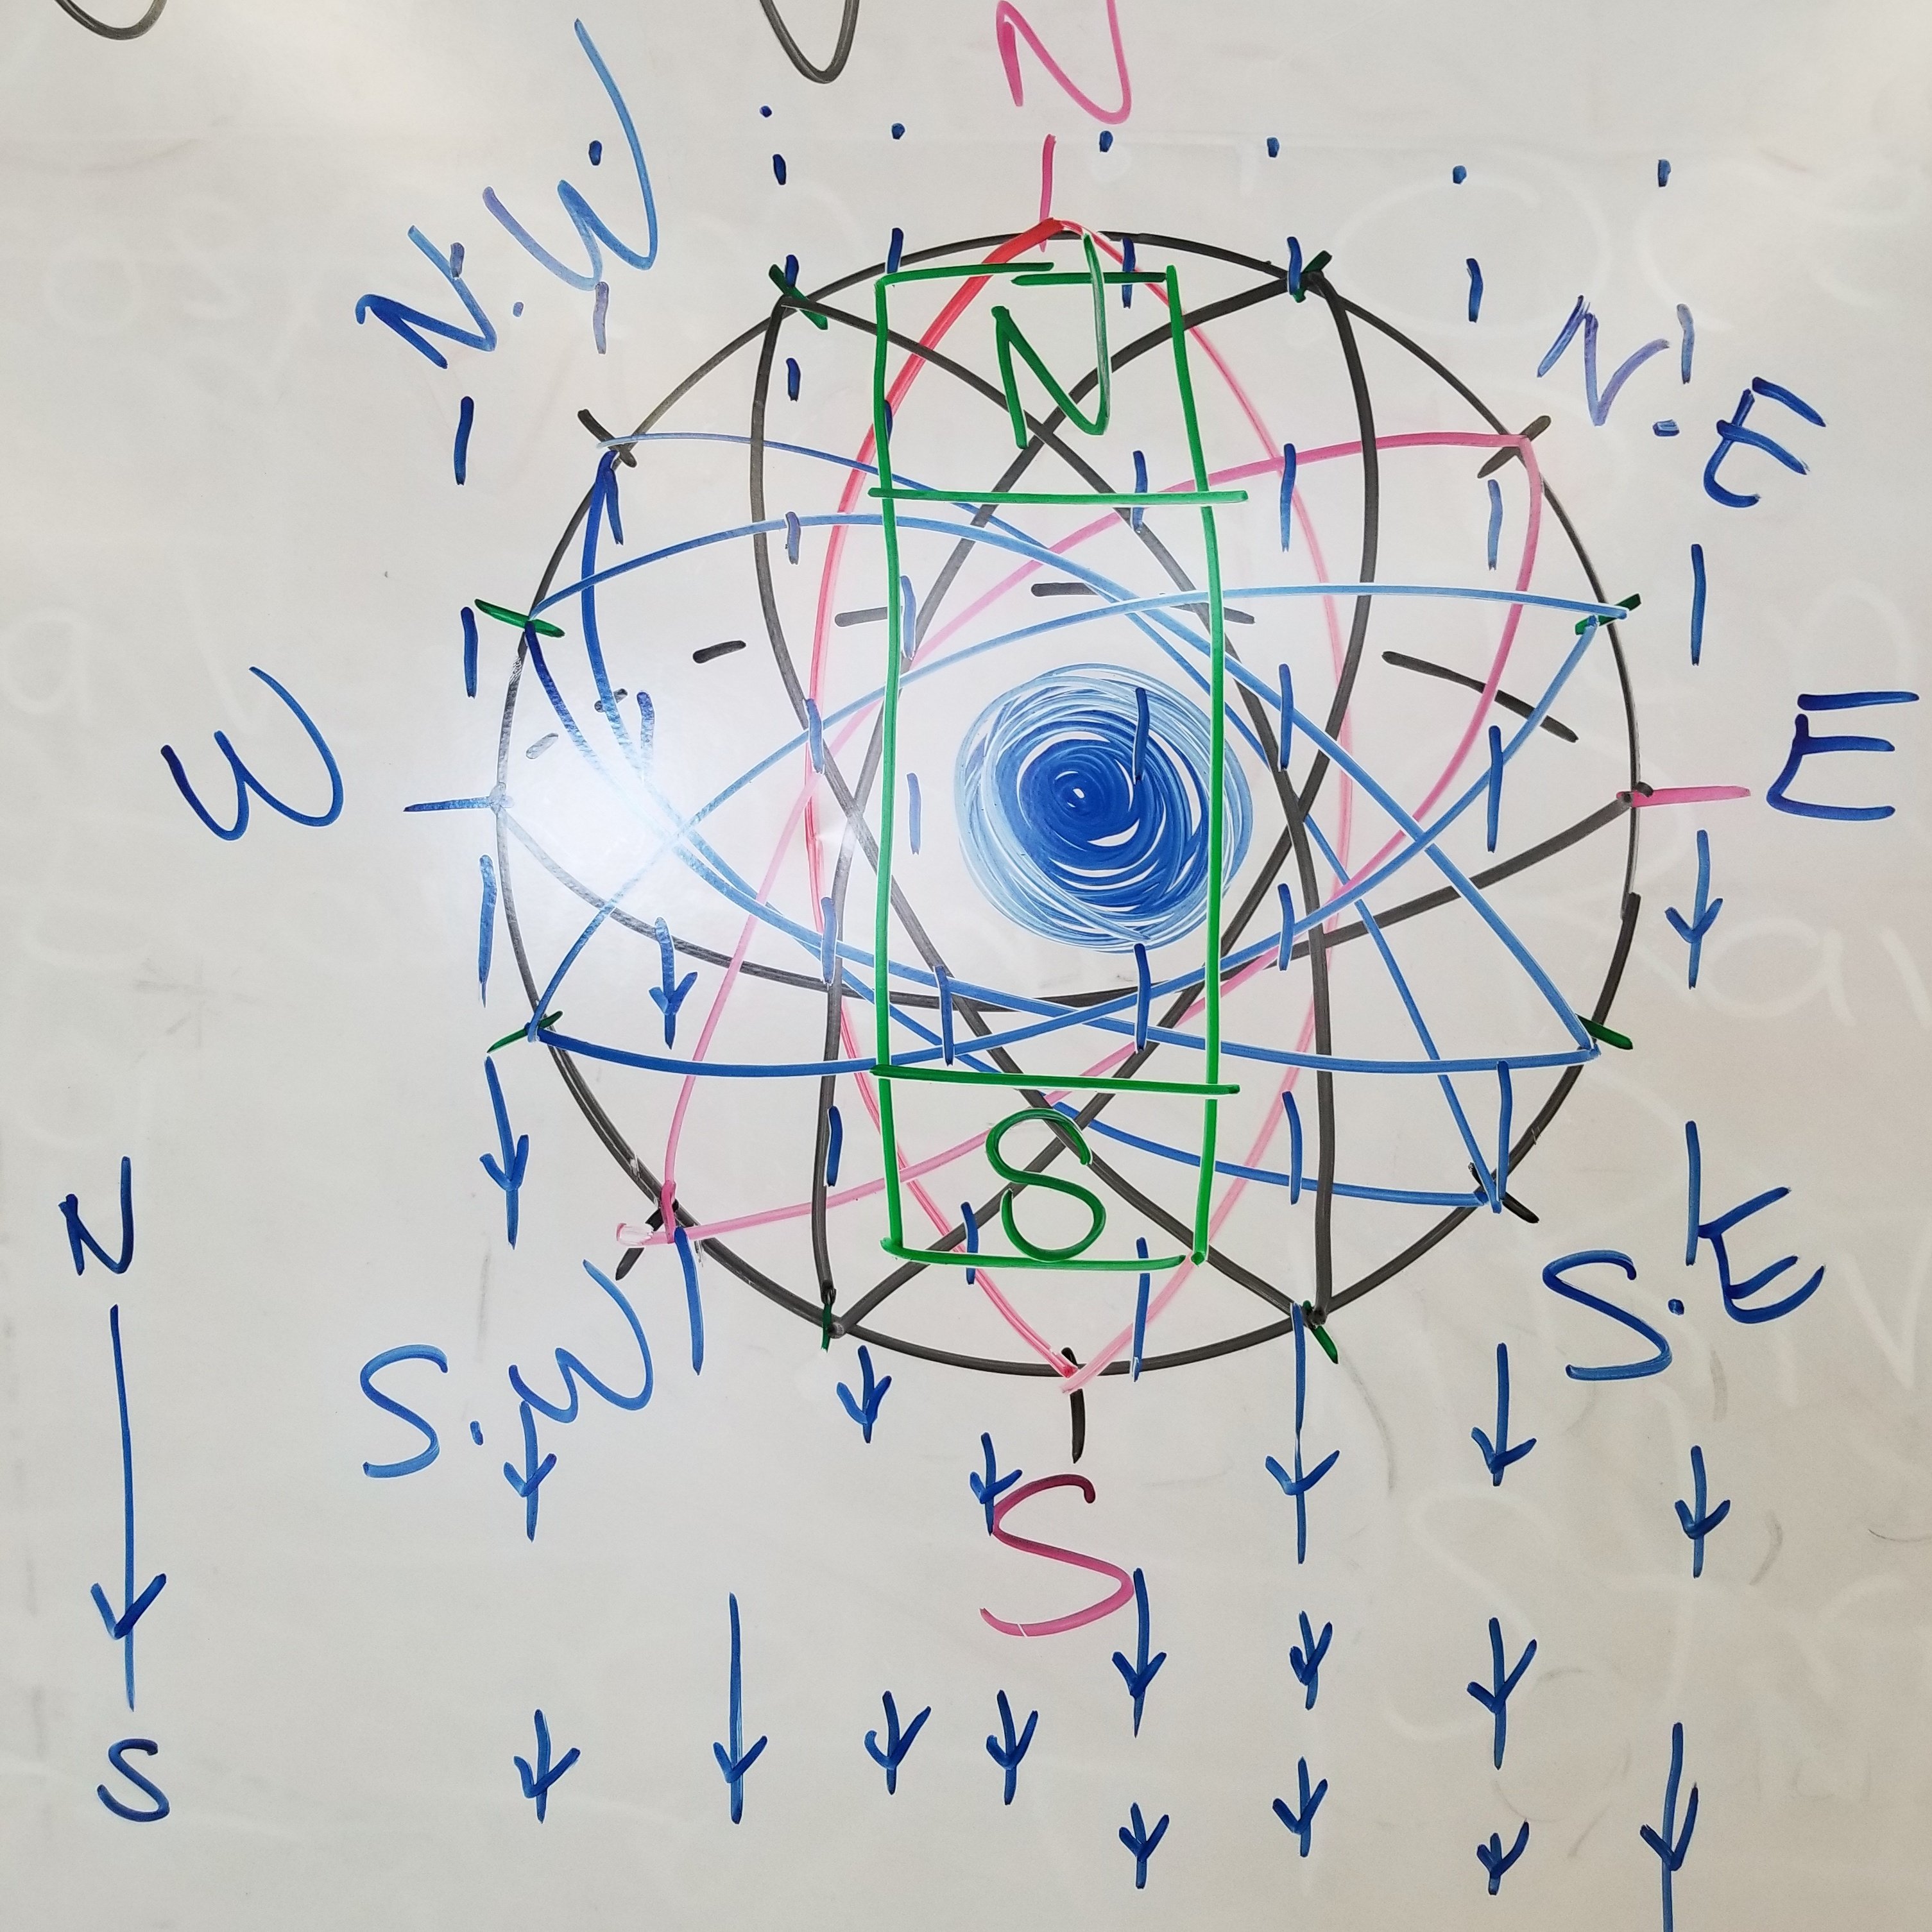 N
N.W.
N.E
N
W
E
S
S.W
S.E
S
N
S